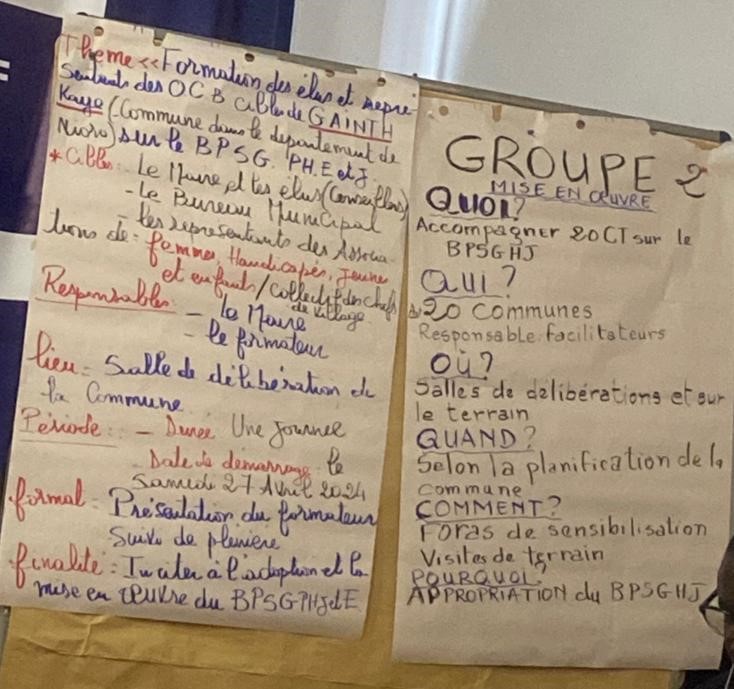 Theme << Formation des élus et repre-
sentants des OCB cibles de GAINTH
Kaye (Commune dans le departement de
Nioro) sur le BPSG. PH.E et J.
* Cibles: Le Maire et les élus (Conseillers)
- Le Bureau Municipal
- les representants des Associa-
tions de: femmes, Handicapés, Jeunes
et enfants / collectif des chefs
de village
Responsables: - le Maire
- le formateur
lieu = Salle de déliberation de
la Commune
Période: - Duree Une Journee
- Date de demarrage le
Samedi 27 Avril 2024
format = Présentation du formateur
Suivi de pleniere
finalité: Inciter à l'adoption et la
mise en œuvre du BPSGPHJetE
GROUPE 2
MISE EN ŒUVRE
QUOI?
Accompagner 20CT sur le
BPSGHJ
QUI?
20 communes
Responsable: facilitateurs
OÙ?
Salles de delibérations et sur
le terrain
QUAND?
Selon la planification de la
commune
COMMENT?
Foras de sensibilisation
Visites de terrain
POURQUOI.
APPROPRIATION du BPSGHJ